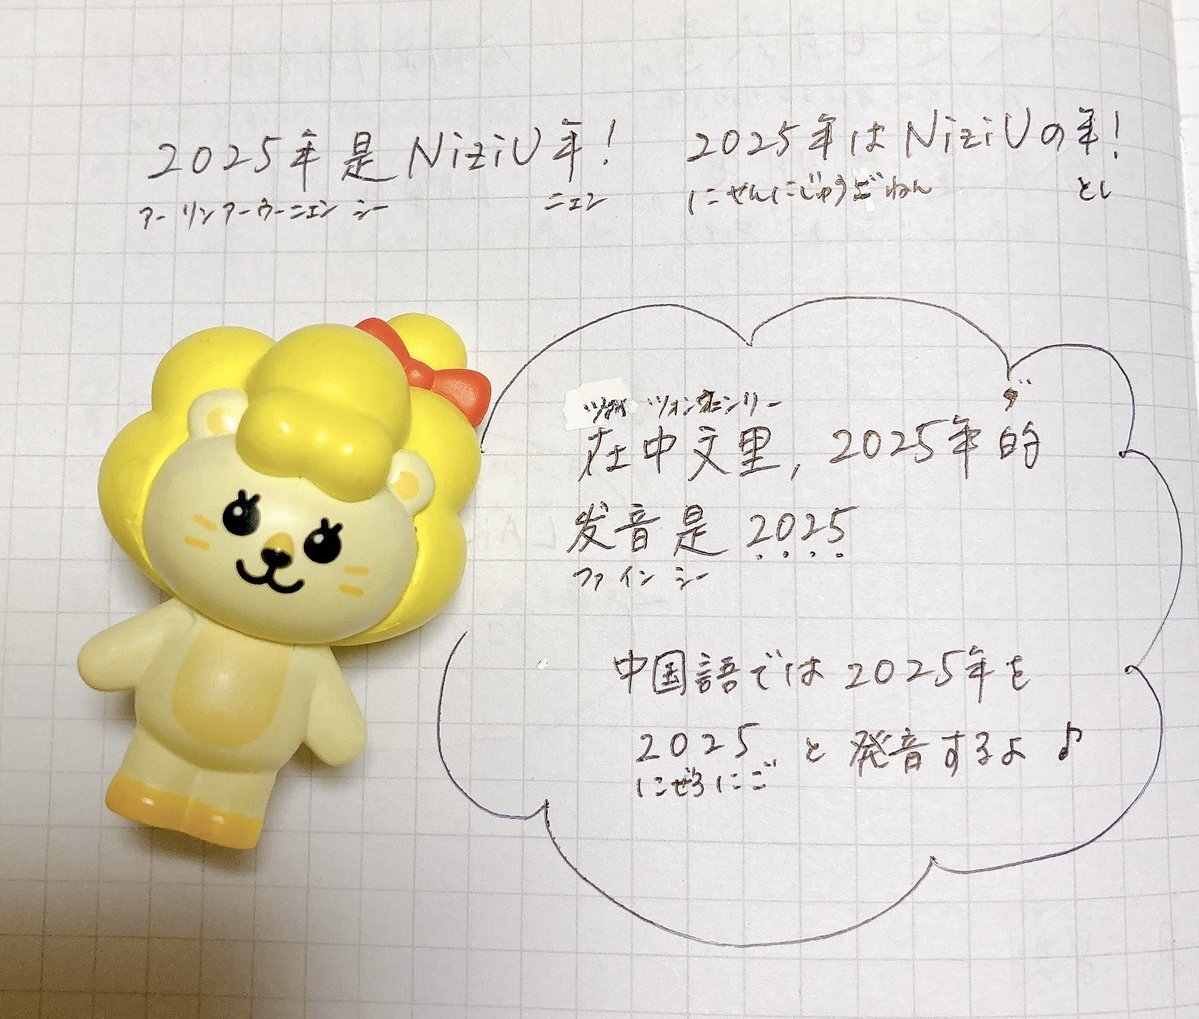 2025年是NiziU年！
アーリンアーウーニエン シー ニエン
2025年はNiziUの年！
にせんにじゅうごねん とし
ツァイ ツォンウェンリー ダ
在中文里, 2025年的
发音是 2025
ファイン シー
中国語では2025年を
2025 と発音するよ♪
にぜろにご